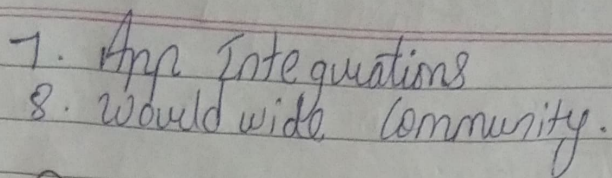 7. App Integrations
8. World wide Community.